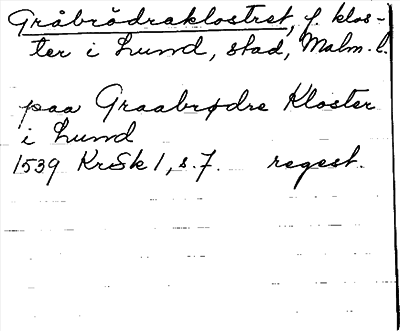 Gråbrödraklostret, f. klos-
ter i Lund, stad, Malm. l.
paa Graabrødre Kloster
i Lund
1539 KrSk 1, s. 7. regest.